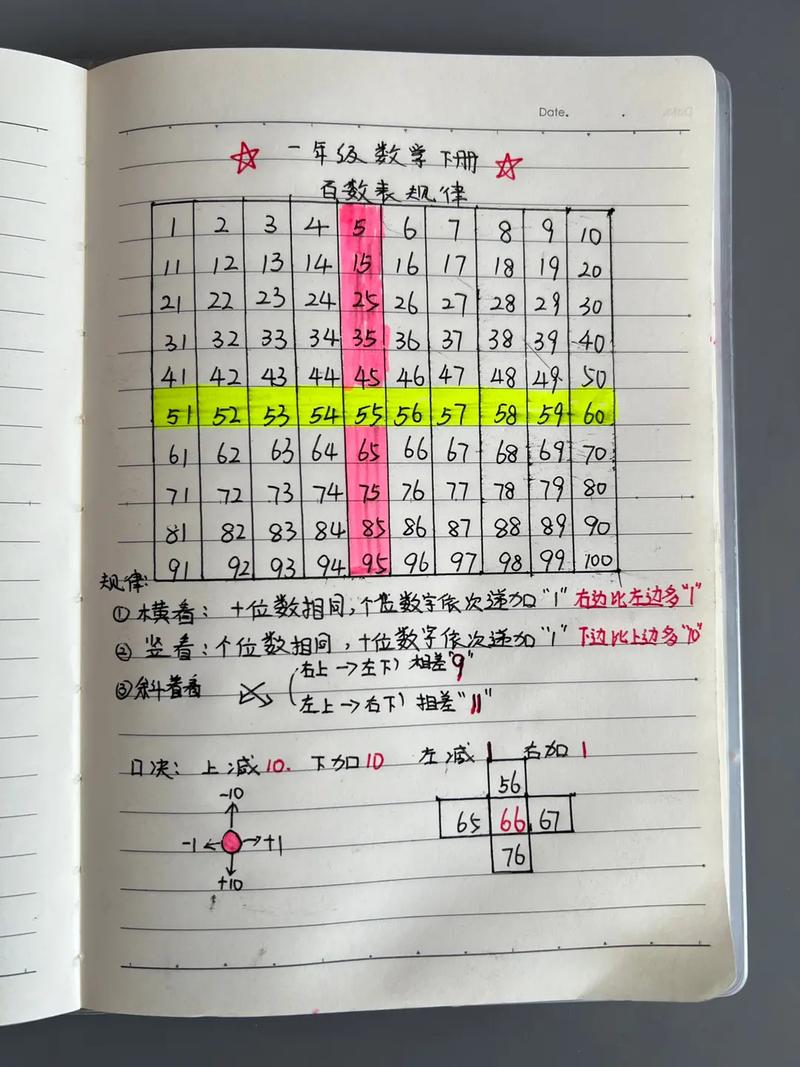 Date.
一年级数学下册
百数表规律
1 2 3 4 5 6 7 8 9 10
11 12 13 14 15 16 17 18 19 20
21 22 23 24 25 26 27 28 29 30
31 32 33 34 35 36 37 38 39 40
41 42 43 44 45 46 47 48 49 50
51 52 53 54 55 56 57 58 59 60
61 62 63 64 65 66 67 68 69 70
71 72 73 74 75 76 77 78 79 80
81 82 83 84 85 86 87 88 89 90
91 92 93 94 95 96 97 98 99 100
规律:
①横看: 十位数相同,个位数字依次递加"1" 右边比左边多"1"
② 竖看:个位数相同,十位数字依次递加"1" 下边比上边多"10"
③斜着看 (右上→左下) 相差"9"
(左上→右下) 相差"11"
口决: 上减10. 下加10 左减1 右加1
-10
-1 ← → +1
+10
56
65 66 67
76